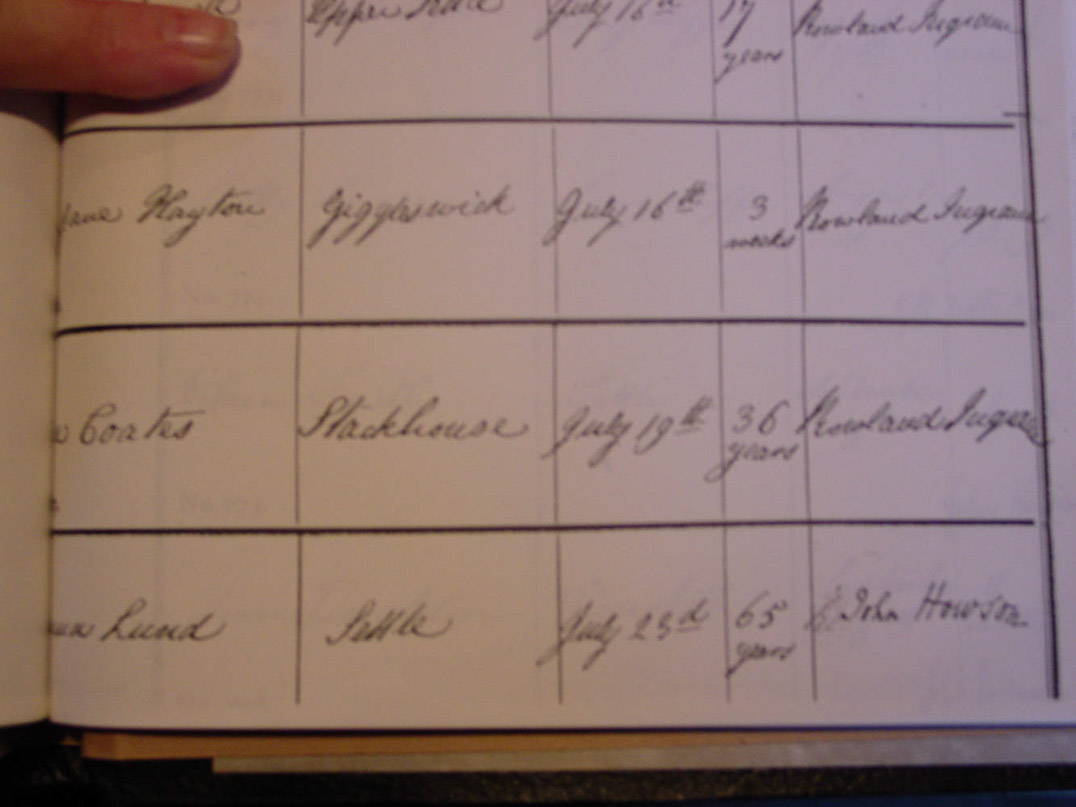 Upper Settle July 16th 17 years Rowland Ingram
Jane Hayton Giggleswick July 16th 3 weeks Rowland Ingram
Coates Stackhouse July 19th 36 years Rowland Ingram
Lund Settle July 23d 65 years John Howson